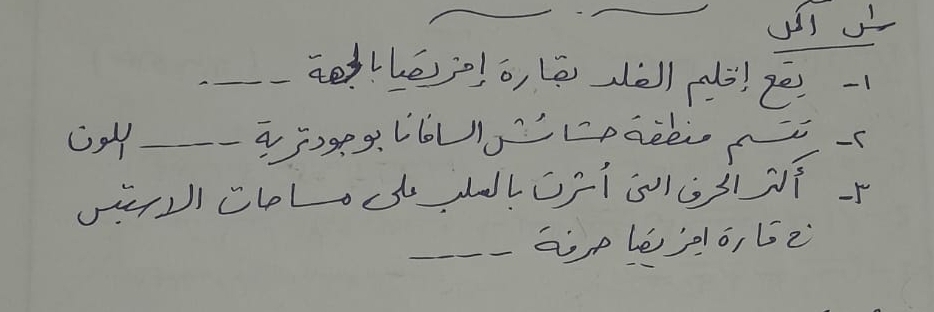 س١ أكمل
١- يقع إقليم الفلد بقارة إفريقيا بالجهة ----.
٢- تتسم منطقة حشائش السافانا بوجود تربة ---- اللون
٣- أكثر الحرف التى أثرت بالسلب على مساحات الاستبس
فى قارة إفريقيا حرفة ----